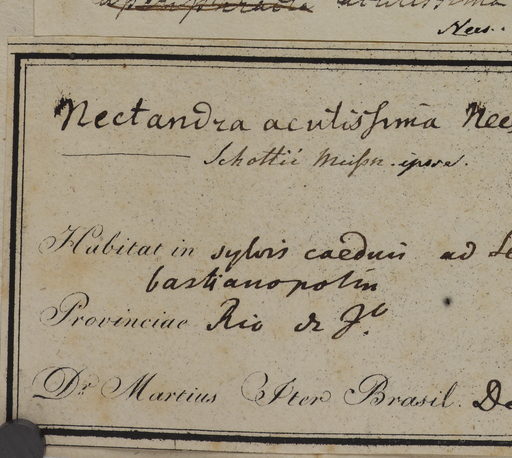 acutissima
Nees.
Nectandra acutissima Nees
Schottii Meissn. ipse.
Habitat in sylvis caeduis ad Se
bastianopolin
Provinciae Rio de Jo
Dr. Martius Iter Brasil. De